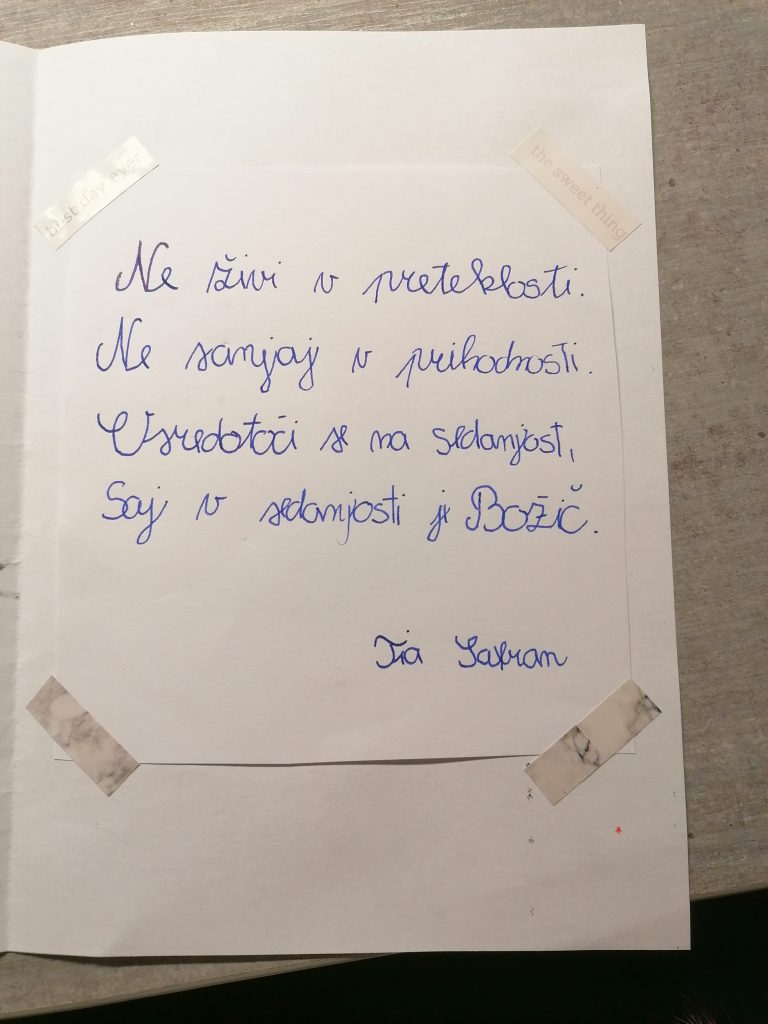 best day ever
the sweet thing
Ne živi v preteklosti.
Ne sanjaj v prihodnosti.
Usredotoči se na sedanjost,
Saj v sedanjosti je Božič.
Tia Safran